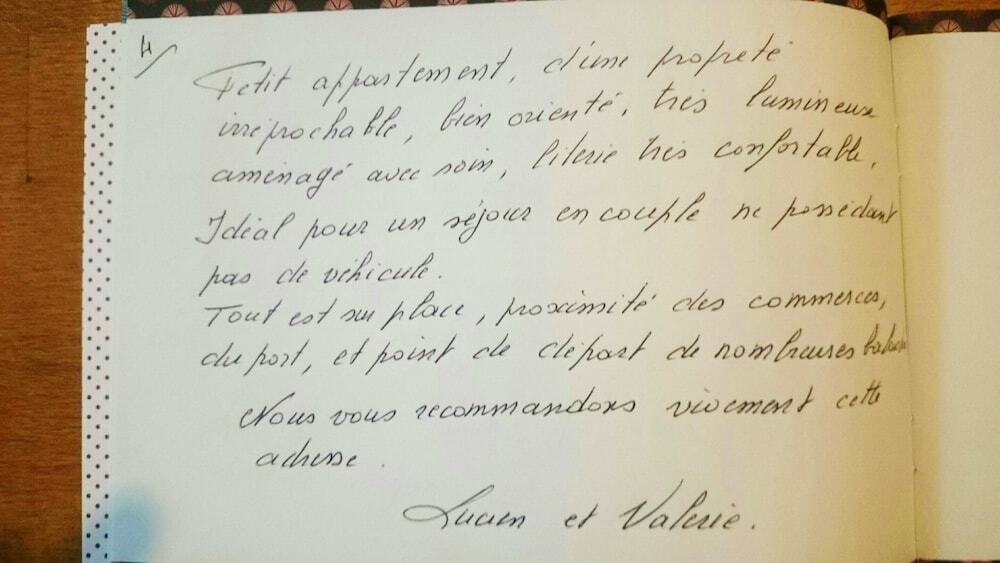 4/
Petit appartement, d'une propreté
irréprochable, bien orienté, très lumineux
aménagé avec soin, literie très confortable.
Idéal pour un séjour en couple ne possédant
pas de véhicule.
Tout est sur place, proximité des commerces,
du port, et point de départ de nombreuses
Nous vous recommandons vivement cette
adresse.
Lucien et Valérie.